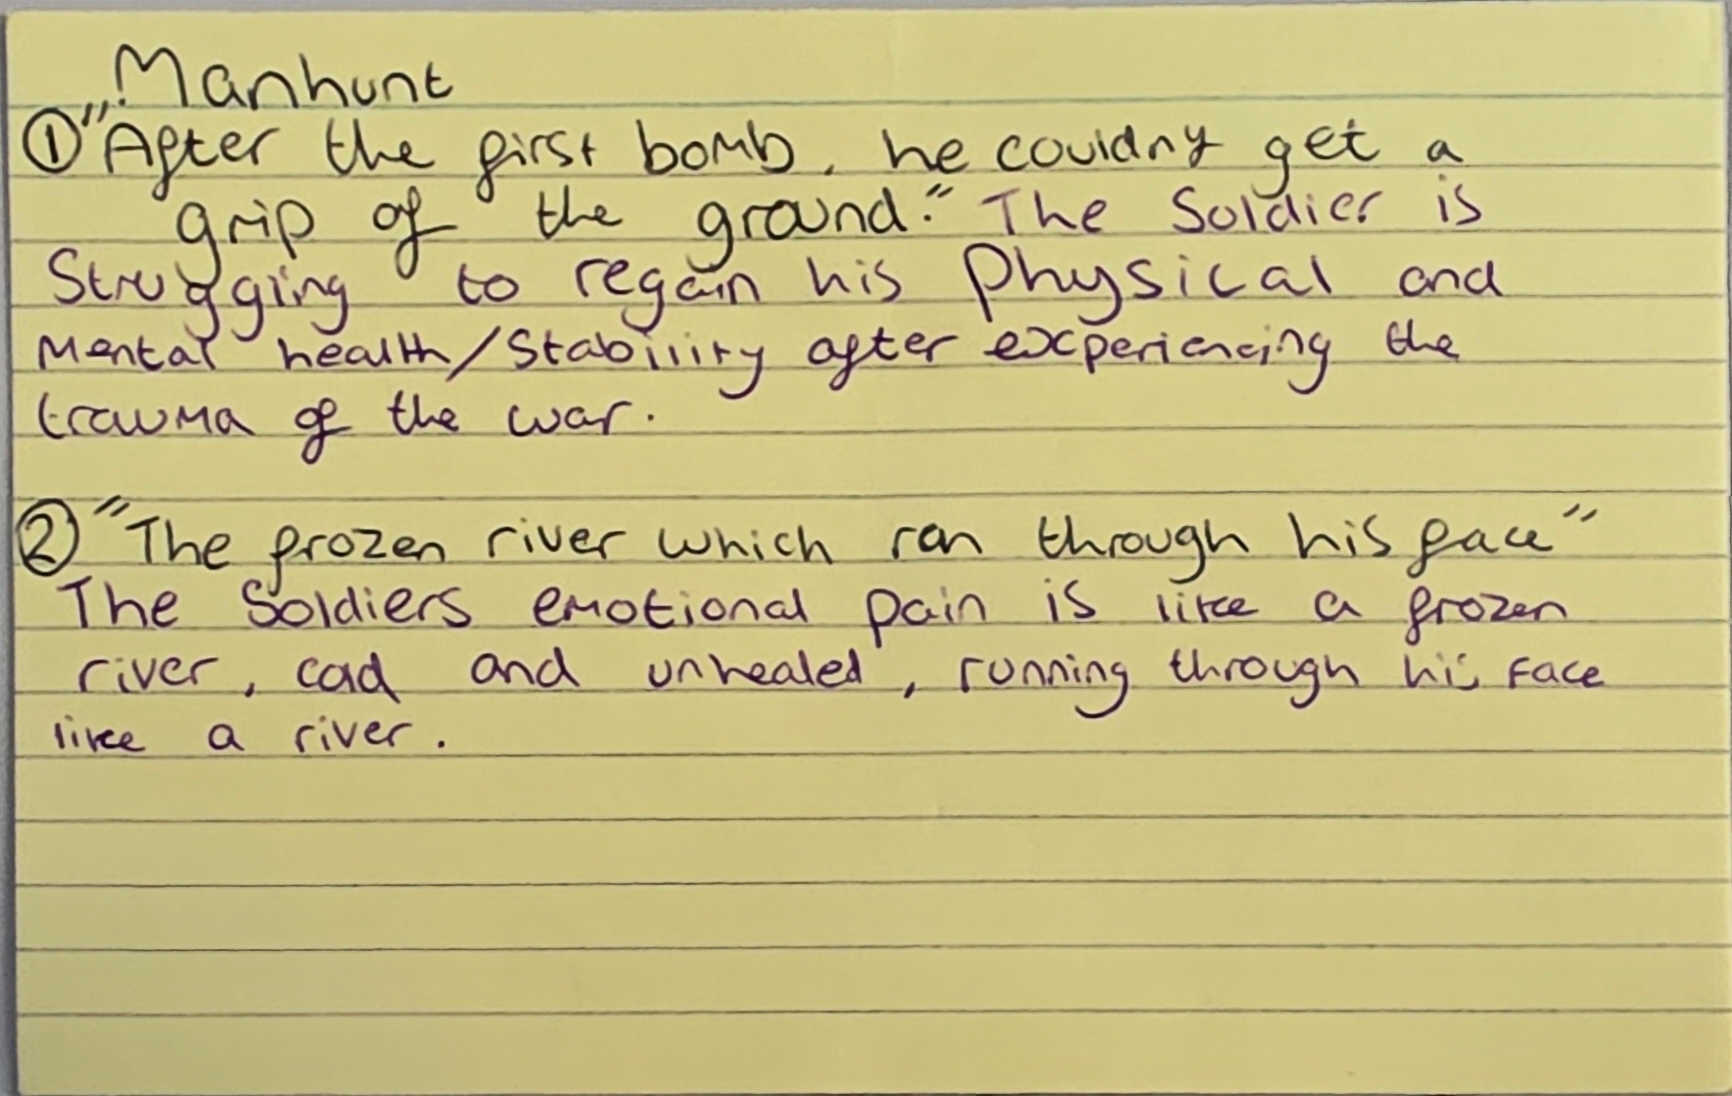 Manhunt
① "After the first bomb, he couldnt get a
grip of the ground." The Soldier is
Struggling to regain his Physical and
Mental health/Stability after experiencing the
trauma of the war.
② "The frozen river which ran through his face"
The Soldiers emotional pain is like a frozen
river, cad and unhealed, running through his face
like a river.